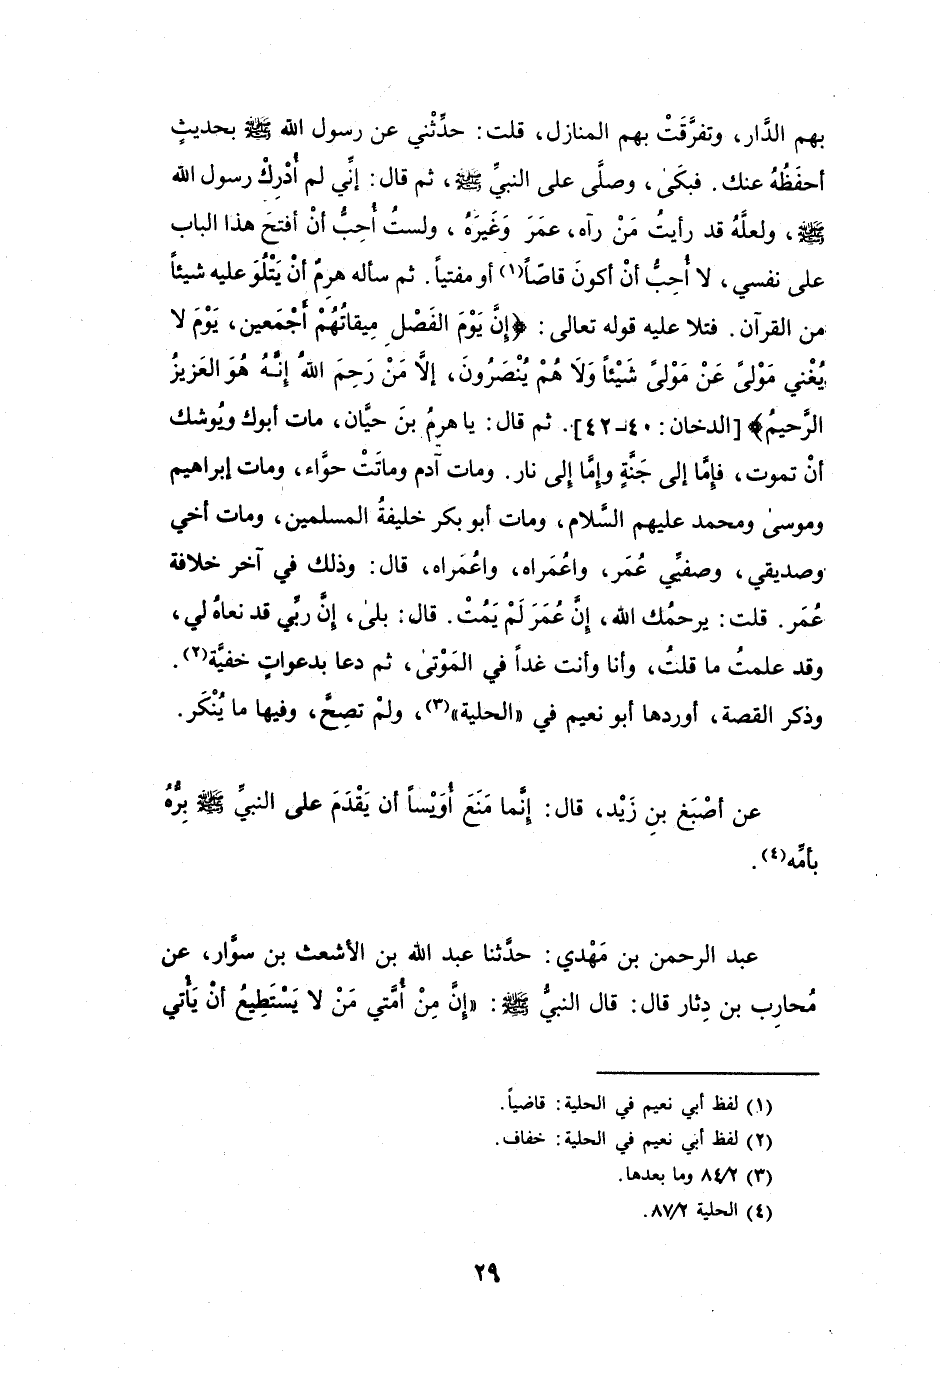 بهم الدَّار، وتفرَّقَتْ بهم المنازل، قلت: حدِّثْني عن رسول الله ﷺ بحديثٍ
أحفَظُهُ عنك. فبكَىٰ، وصلَّى على النبيِّ ﷺ، ثم قال: إنِّي لم أُدْرِكْ رسول الله
ﷺ، ولعلَّهُ قد رأيتُ مَنْ رآه، عمَرَ وَغَيرَهُ، ولستُ أُحِبُّ أنْ أفتحَ هذا الباب
على نفسي، لا أُحِبُّ أنْ أكونَ قاصّاً(١) أو مفتياً. ثم سأله هرمٌ أنْ يَتْلُوَ عليه شيئاً
من القرآن. فتلا عليه قوله تعالى: ﴿إنَّ يَوْمَ الفَصْلِ مِيقاتُهُمْ أَجْمَعين، يَوْمَ لا
يُغْني مَوْلىً عَنْ مَوْلىً شَيْئاً وَلَا هُمْ يُنْصَرُونَ، إلَّا مَنْ رَحِمَ اللهُ إنَّهُ هُوَ العَزيزُ
الرَّحيمُ﴾ [الدخان: ٤٠-٤٢]. ثم قال: يا هرمُ بنَ حيَّان، مات أبوك ويُوشك
أنْ تموت، فإمَّا إلى جَنَّةٍ وإمَّا إلى نار. ومات آدم وماتَتْ حوَّاء، ومات إبراهيم
وموسىٰ ومحمد عليهم السَّلام، ومات أبو بكر خليفةُ المسلمين، ومات أخي
وصديقي، وصفيِّي عُمَر، واعُمَراه، واعُمَراه، قال: وذلك في آخر خلافة
عُمَر. قلت: يرحمُك الله، إنَّ عُمَرَ لَمْ يَمُتْ. قال: بلىٰ، إنَّ ربِّي قد نعاهُ لي،
وقد علمتُ ما قلتُ، وأنا وأنت غداً في المَوْتىٰ، ثم دعا بدعواتٍ خفيَّة(٢).
وذكر القصة، أوردها أبو نعيم في «الحلية»(٣)، ولمْ تصِحَّ، وفيها ما يُنْكَر.
عن أصْبَغ بنِ زَيْد، قال: إنَّما مَنَعَ أُوَيْساً أن يَقْدَمَ على النبيِّ ﷺ بِرُّهُ
بأمِّه(٤).
عبد الرحمن بن مَهْدي: حدَّثنا عبد الله بن الأشعث بن سوَّار، عن
مُحارِب بن دِثار قال: قال النبيُّ ﷺ: «إنَّ مِنْ أُمَّتي مَنْ لا يَسْتَطِيعُ أنْ يَأْتي
(١) لفظ أبي نعيم في الحلية: قاضياً.
(٢) لفظ أبي نعيم في الحلية: خفاف.
(٣) ٨٤/٢ وما بعدها.
(٤) الحلية ٨٧/٢.
٢٩